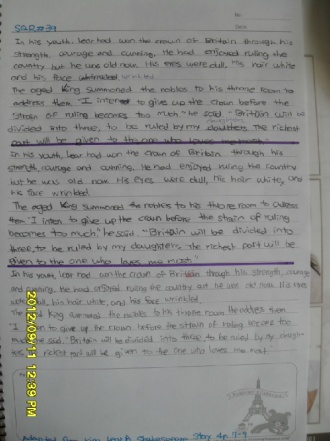 No.
Date
In his youth, Lear had won the crown of Britain through his
strength, courage and cunning. He had enjoyed ruling the
country but he was old now. His eyes were dull, his hair white
and his face wrinkled
The aged king summoned the nobles to his throne room to
address them "I intend to give up the crown before the
strain of ruling becomes too much" he said "Britain will be
divided into three, to be ruled by my daughters. The richest
part will be given to the one who loves me most."
In his youth, Lear had won the crown of Britain through his
strength, courage and cunning. He had enjoyed ruling the country
but he was old now. His eyes were dull, his hair white, and
his face wrinkled.
The aged king summoned the nobles to his throne room to address
them "I inten to give up the crown before the strain of ruling
becomes too much" he said "Britain will be divided into
three, to be ruled by my daughters. The richest part will be
given to the one who loves me most."
In his youth, Lear had won the crown of Britain through his strength, courage
and cunning. He had enjoyed ruling the country but he was old now. His eyes
were dull, his hair white, and his face wrinkled.
The aged king summoned the nobles to his throne room He address them
"I inten to give up the crown before the strain of ruling become too
much" he said. "Britain will be divided into three to be ruled by my
richest part will be given to the one who loves me most
2012/09/11 12:39 PM
Adapted from King Lear A Shakespeare Story